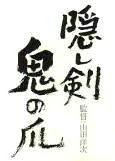 隠し剣
鬼の爪
監督・山田洋次